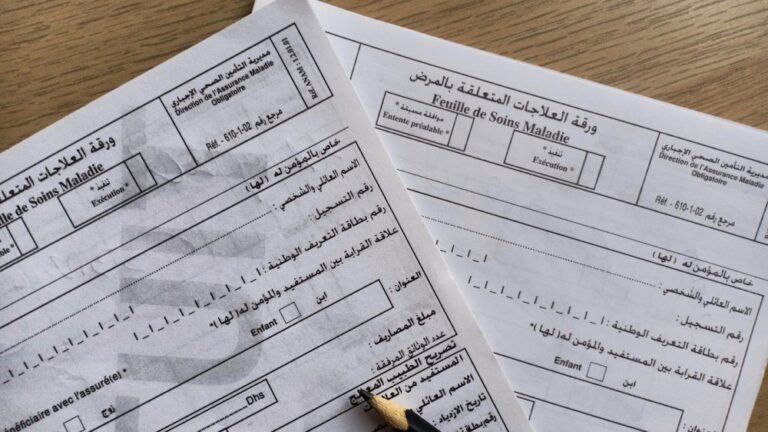 مديرية التأمين الصحي الإجباري
Direction de l'Assurance Maladie
Obligatoire
Réf. ANAM : 1.2.01.01
مرجع رقم Réf. - 610-1-02
ورقة العلاجات المتعلقة
Feuille de Soins Maladie
* تنفيذ
Exécution *
préalable *
خاص بالمؤمن له (لها)
الاسم العائلي والشخصي :
رقم التسجيل :
رقم بطاقة التعريف الوطنية :
علاقة القرابة بين المستفيد والمؤمن له(لها)*
ابن
Enfant
زوج
bénéficiaire avec l'assuré(e) *
العنوان :
مبلغ المصاريف :
Dhs
عدد الوثائق المرفقة :
تصريح الطبيب المعالج
المستفيد من
الاسم العائلي
تاريخ الازدياد :
ورقة العلاجات المتعلقة بالمرض
Feuille de Soins Maladie
موافقة مسبقة *
Entente préalable *
تنفيذ *
Exécution *
مديرية التأمين الصحي الإجباري
Direction de l'Assurance Maladie
Obligatoire
مرجع رقم Réf. - 610-1-02
خاص بالمؤمن له (لها)
الاسم العائلي والشخصي :
رقم التسجيل :
رقم بطاقة التعريف الوطنية :
علاقة القرابة بين المستفيد والمؤمن له(لها)*
ابن
Enfant
العنوان :